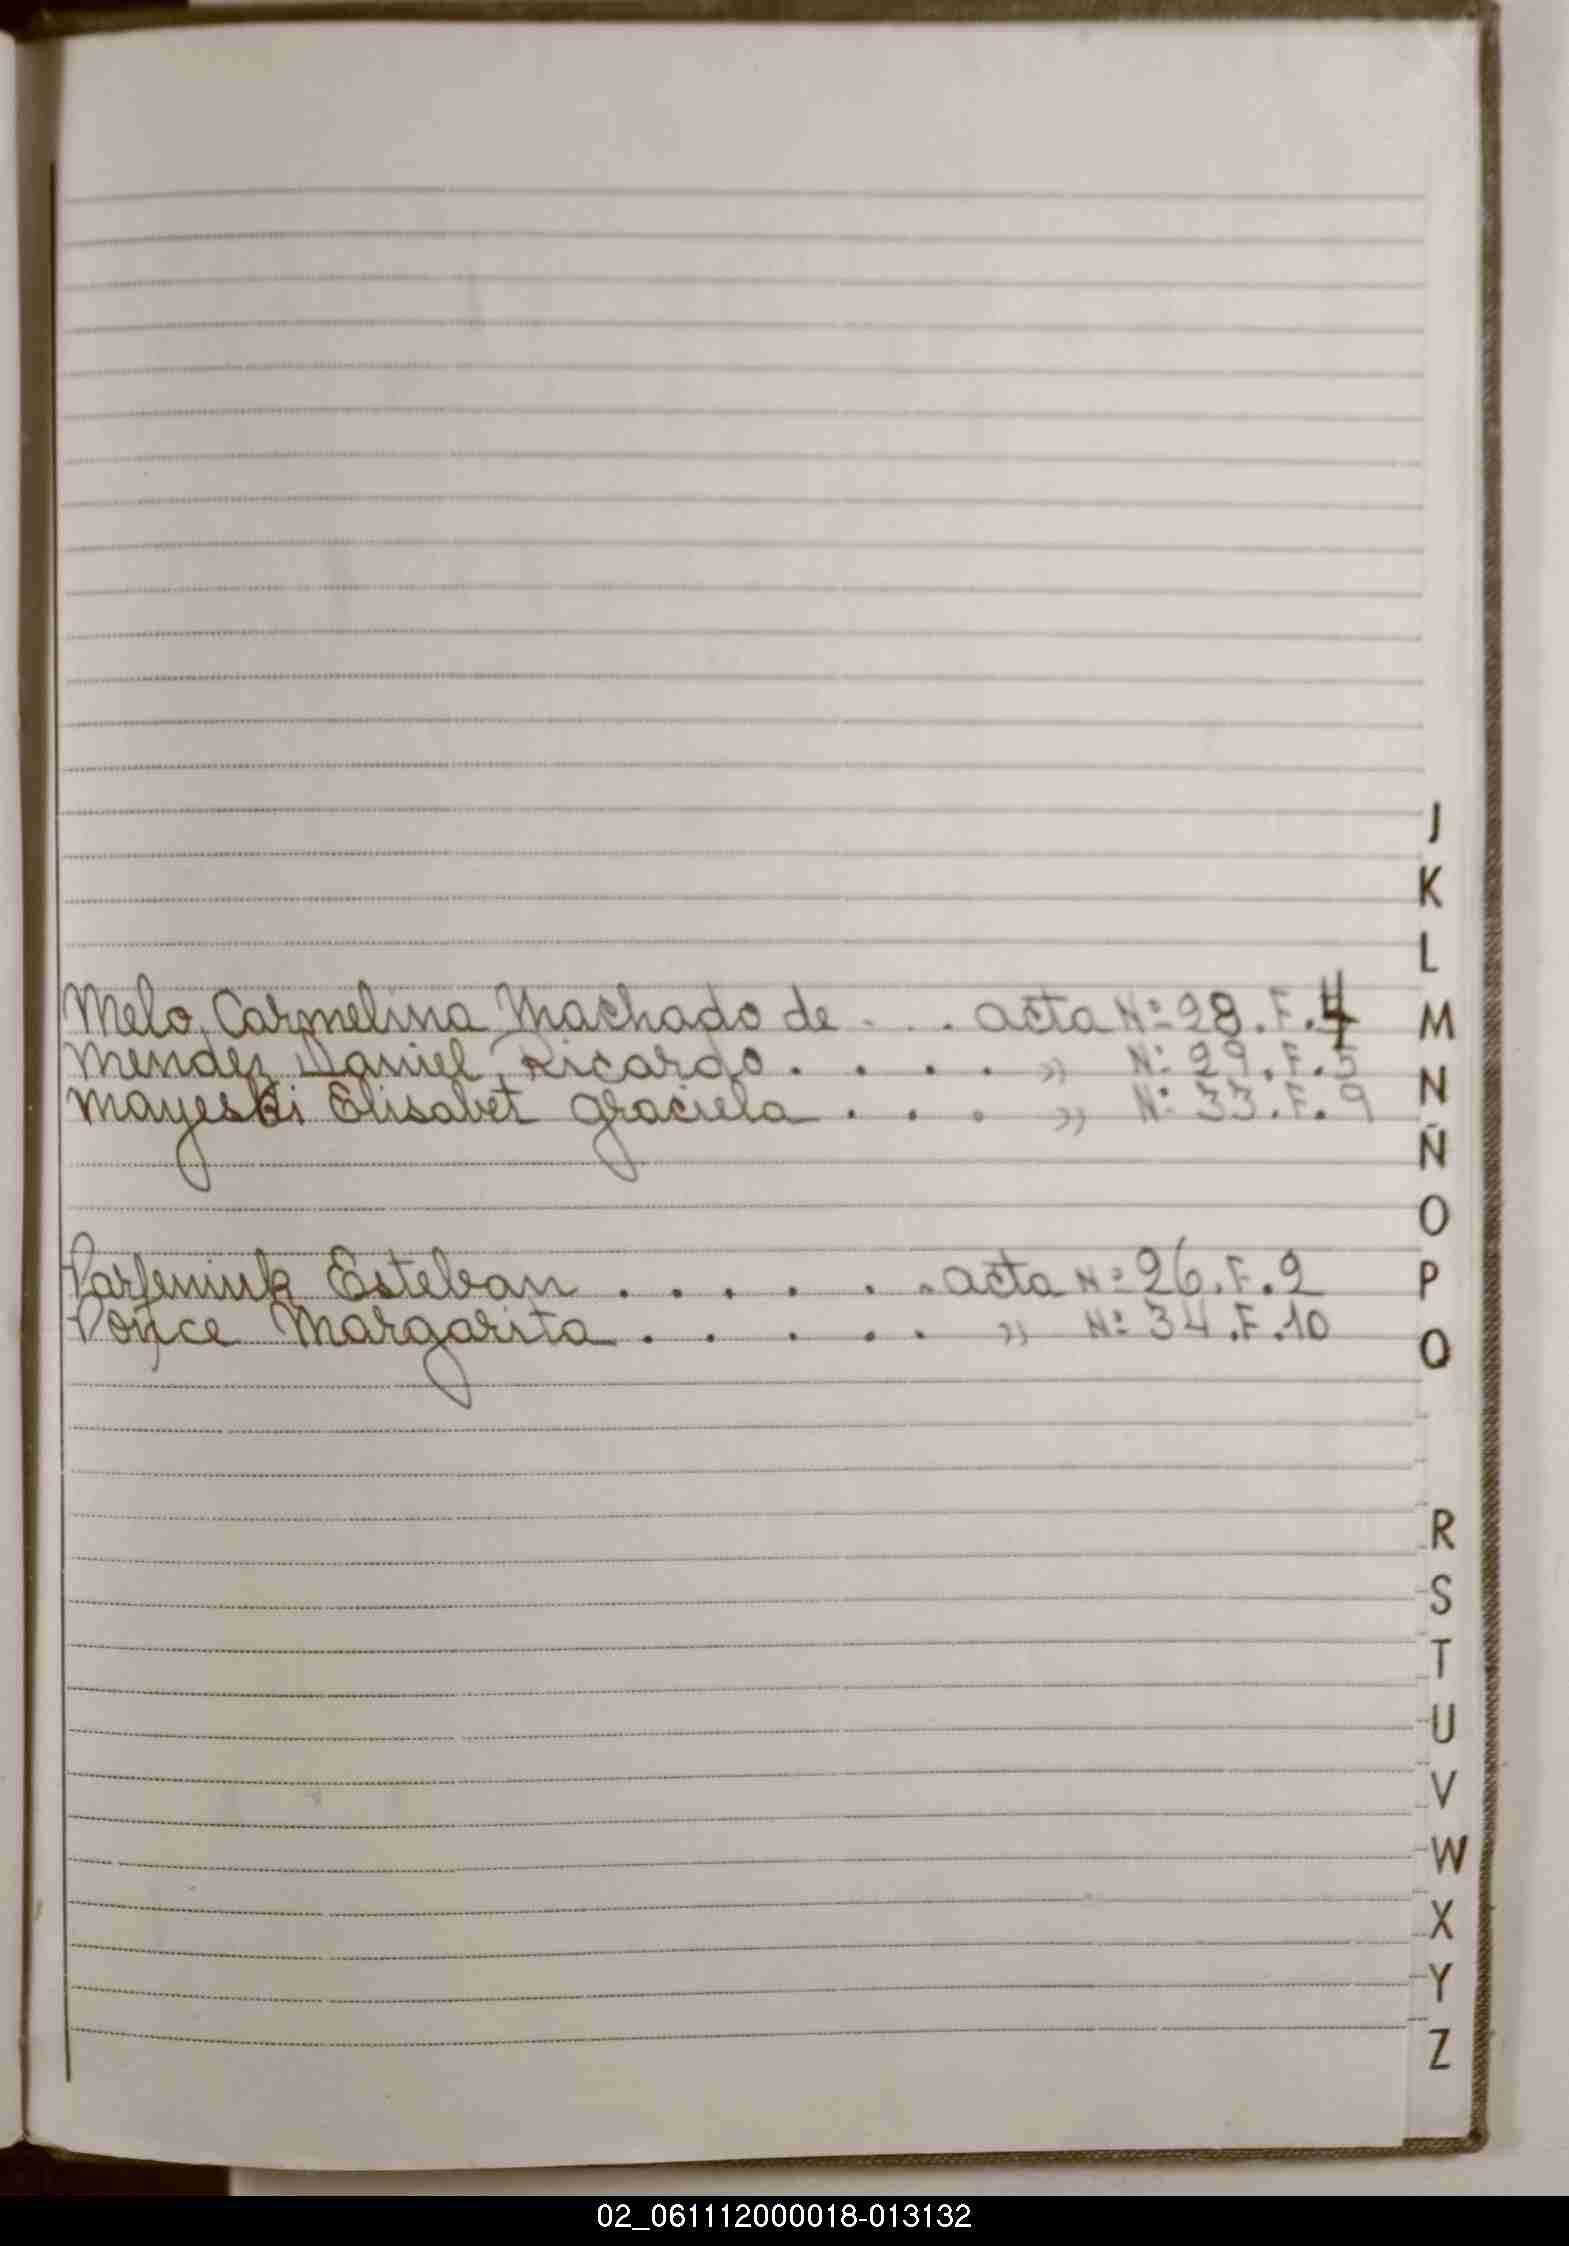 J
K
L
Melo, Carmelina Machado de . . . acta Nº 28. F. 4 M
Mendez Daniel Ricardo . . . . » Nº 29. F. 5
Mayeski Elisabet Graciela . . . » Nº 33. F. 9 N
Ñ
O
Parfeniuk Esteban . . . . . . acta Nº 26. F. 2 P
Ponce Margarita . . . . . » Nº 34. F. 10
Q
R
S
T
U
V
W
X
Y
Z
02_061112000018-013132